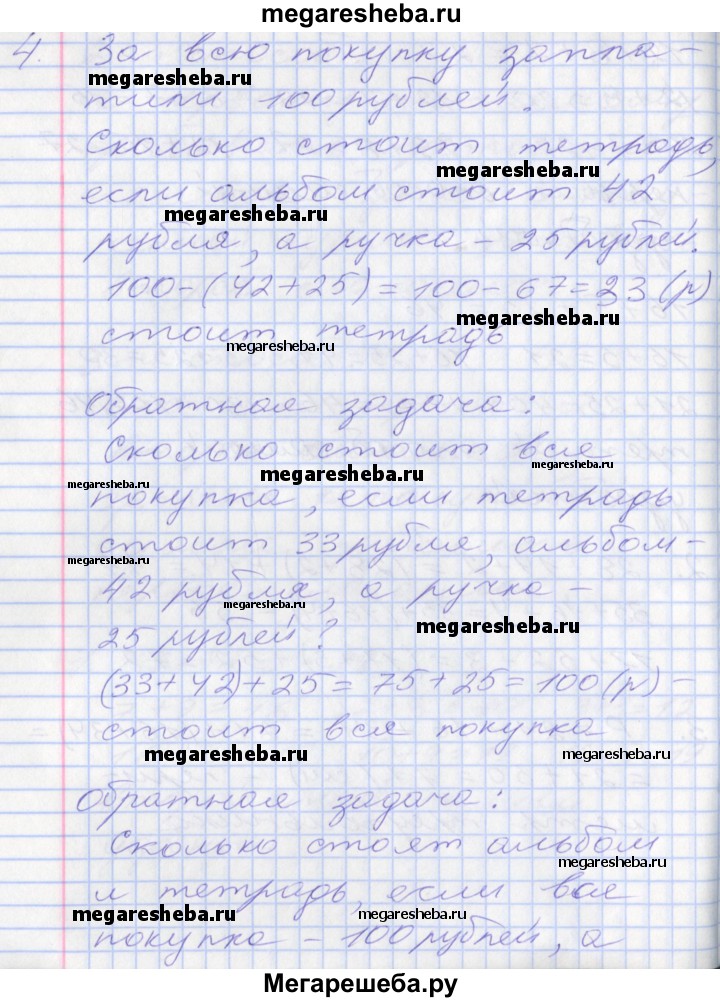 megaresheba.ru
4. За всю покупку запла-
megaresheba.ru
тили 100 рублей.
Сколько стоит тетрадь,
megaresheba.ru
если альбом стоит 42
megaresheba.ru
рубля, а ручка - 25 рублей.
100-(42+25)=100-67=33 (р)
megaresheba.ru
стоит тетрадь
megaresheba.ru
Обратная задача:
Сколько стоит вся
megaresheba.ru
megaresheba.ru
megaresheba.ru
покупка, если тетрадь
стоит 33 рубля, альбом-
megaresheba.ru
42 рубля, а ручка -
megaresheba.ru
megaresheba.ru
25 рублей?
(33+42)+25=75+25=100(р)-
стоит вся покупка
megaresheba.ru
megaresheba.ru
Обратная задача:
Сколько стоят альбом
megaresheba.ru
и тетрадь, если вся
megaresheba.ru
megaresheba.ru
покупка - 100 рублей, а
Мегарешеба.ру